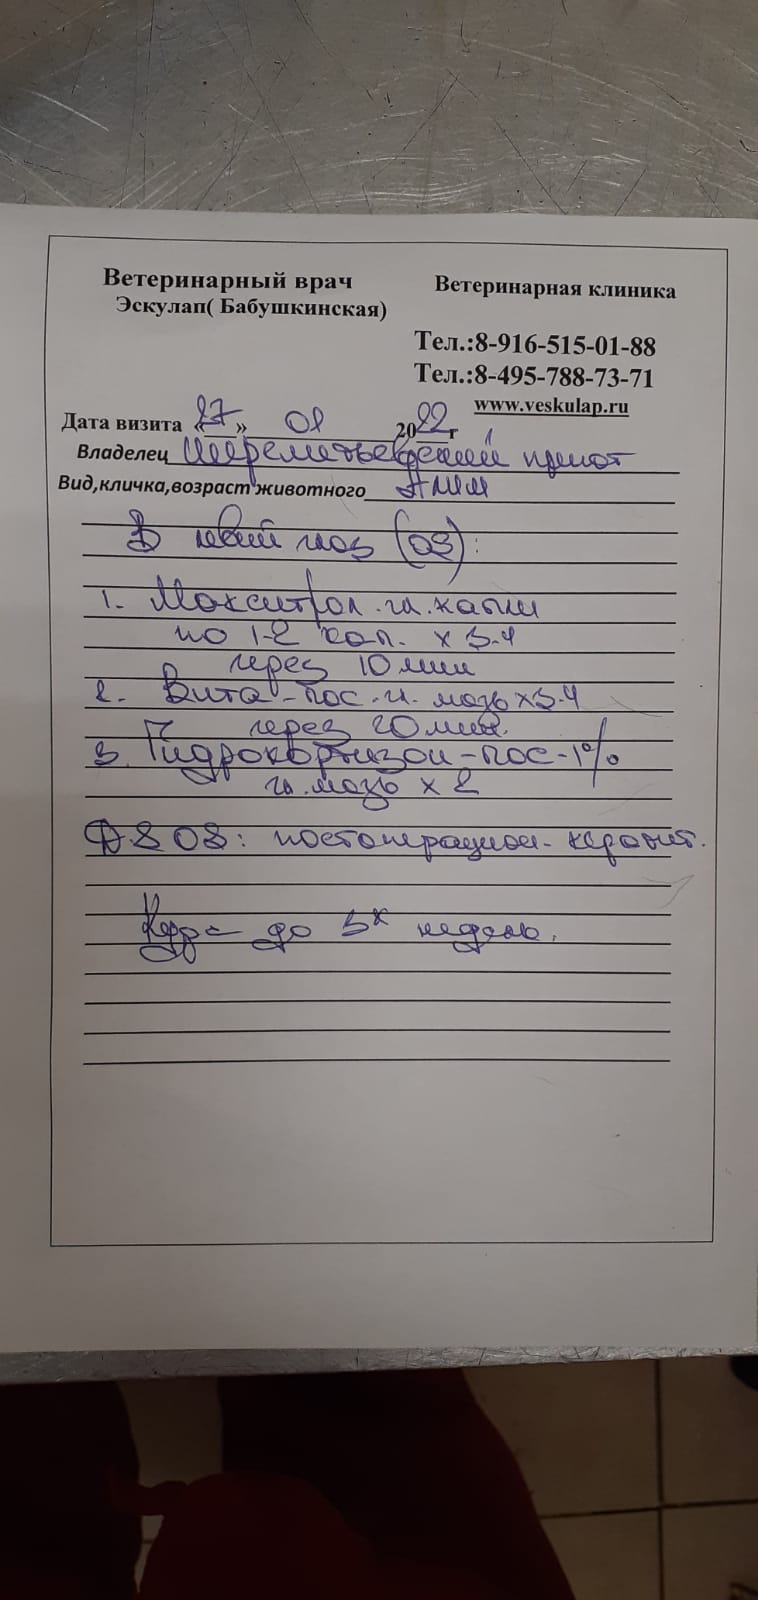 Ветеринарный врач
Эскулап( Бабушкинская)
Ветеринарная клиника
Тел.:8-916-515-01-88
Тел.:8-495-788-73-71
www.veskulap.ru
Дата визита «27» 01 2022г
Владелец Шереметьевский приют
Вид,кличка,возраст животного
В левый глаз (OS):
1. Макситрол гл. капли
по 1-2 кап. х 3-4
через 10 мин
2. Вита-пос гл. мазь х 3-4
через 20 мин.
3. Гидрокортизон-пос-1%
гл. мазь х 2
OS: постоперацион. кератит.
до 3х недель.